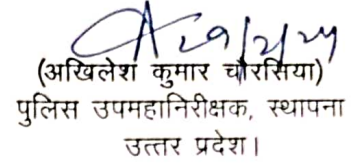 29/2/24
(अखिलेश कुमार चौरसिया)
पुलिस उपमहानिरीक्षक, स्थापना
उत्तर प्रदेश।